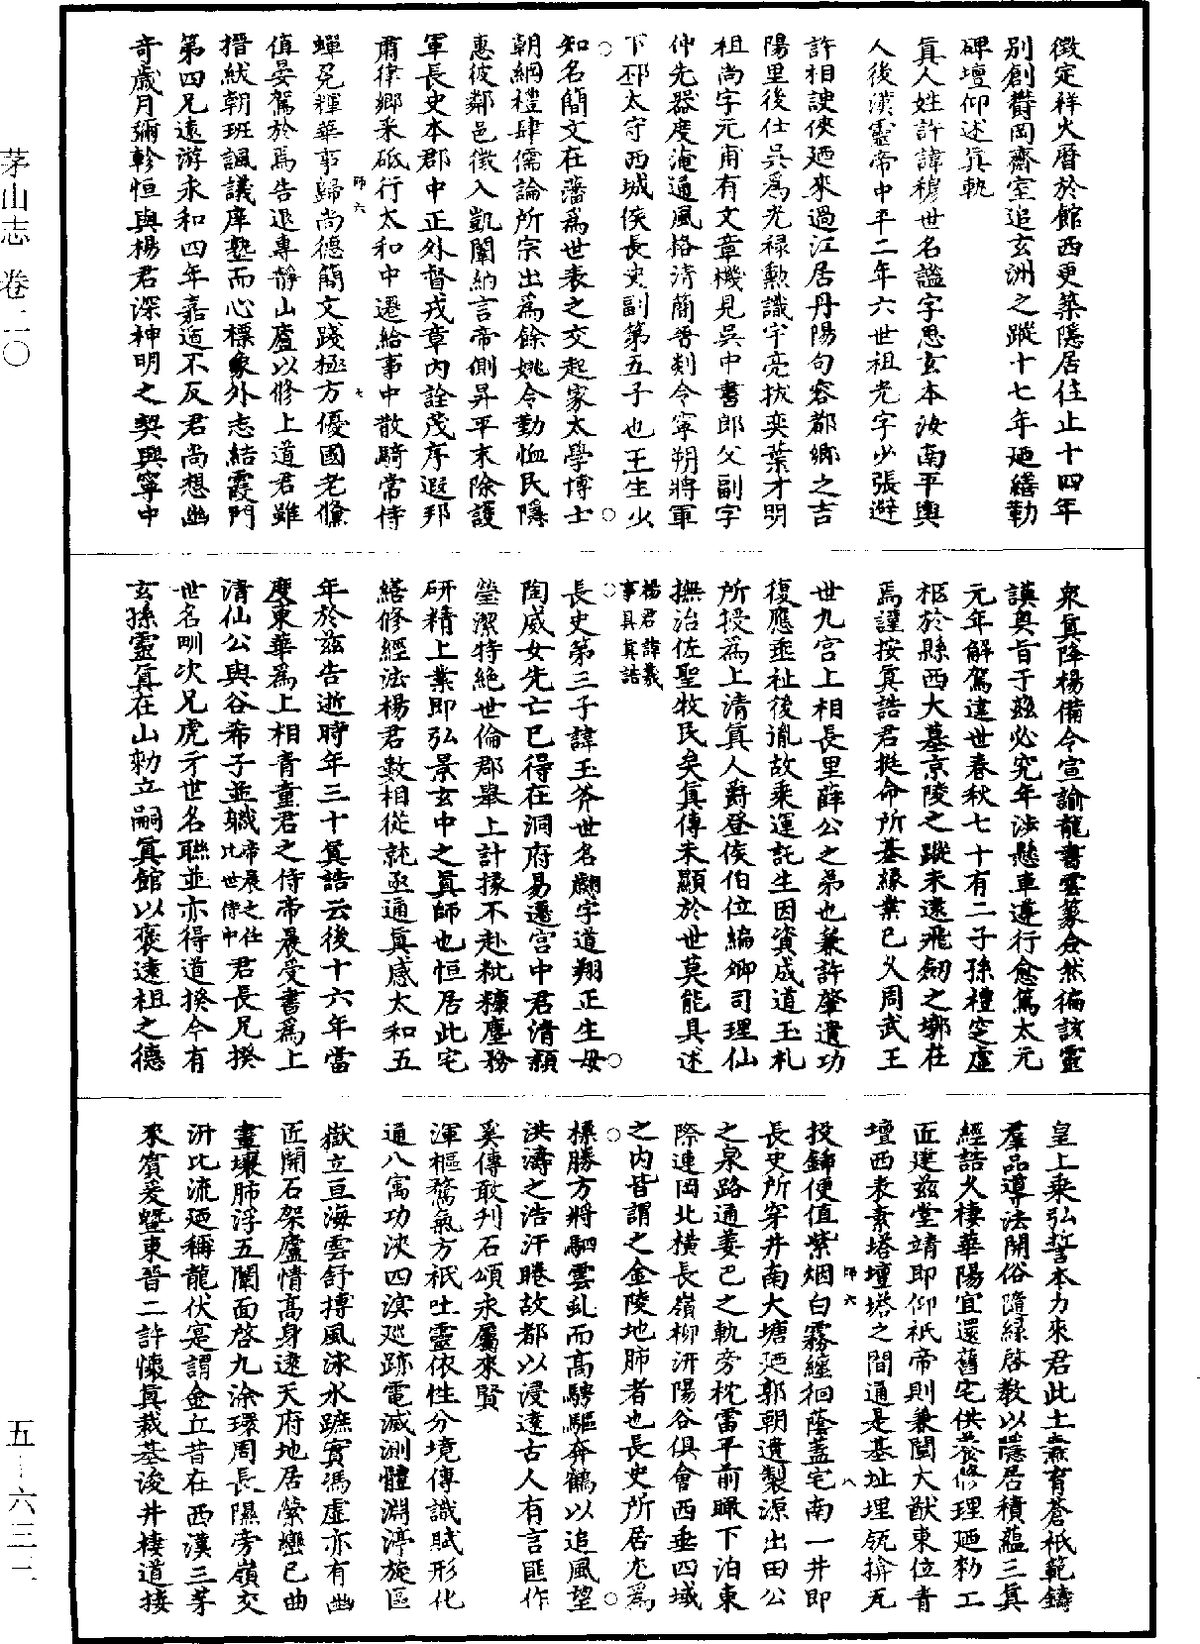 徵定祥火曆於館西更築隱居住止十四年
別創欝岡齋室追玄洲之蹤十七年廼繕勒
碑壇仰述眞軌
眞人姓許諱穆世名謐字思玄本汝南平輿
人後漢靈帝中平二年六世祖光字少張避
許相諛俠廼來過江居丹陽句容都鄉之吉
陽里後仕吳爲光祿勳識宇亮拔奕葉才明
祖尚字元甫有文章機見吳中書郎父副字
仲先器度淹通風格清簡晉剡令寧朔將軍
下邳太守西城侯長史副第五子也王生少
知名簡文在藩爲世表之交起家太學博士
朝綱禮肆儒論所宗出爲餘姚令勤恤民隱
惠彼鄰邑徵入凱闈納言帝側昇平末除護
軍長史本郡中正外督戎章內詮茂序遐邦
肅律鄉采砥行太和中遷給事中散騎常侍
師六
七
蟬冕輝華事歸尚德簡文踐極方優國老儵
值晏駕於焉告退專靜山廬以修上道君雖
搢紱朝班諷議庠塾而心標象外志結霞門
第四兄遠游永和四年嘉遁不反君尚想幽
奇歲月彌軫恒與楊君深神明之契興寧中
衆眞降楊備令宣諭龍書雲篆僉然徧該靈
謨奧旨于茲必究年涉懸車遵行愈篤太元
元年解駕違世春秋七十有二子孫禮窆虛
柩於縣西大墓京陵之蹤未遠飛劒之槨在
焉謹按眞誥君挺命所基緣業已久周武王
世九宮上相長里薛公之弟也兼許肇遺功
復應垂祉後胤故乘運託生因資成道玉札
所授爲上清眞人爵登侯伯位編卿司理仙
撫治佐聖牧民矣眞傳未顯於世莫能具述
楊君諱羲
事具眞誥
長史第三子諱玉斧世名翽字道翔正生母
陶威女先亡已得在洞府易遷宮中君清頴
瑩潔特絕世倫郡舉上計掾不赴粃糠塵務
研精上業即弘景玄中之眞師也恒居此宅
繕修經法楊君數相從就亟通眞感太和五
年於茲告逝時年三十眞誥云後十六年當
度東華爲上相青童君之侍帝晨受書爲上
清仙公與谷希子並職帝晨之任比世侍中君長兄揆
世名甽次兄虎牙世名聯並亦得道揆今有
玄孫靈眞在山勑立嗣眞館以褒遠祖之德
皇上乘弘誓本力來君此土燾育蒼祇範鑄
羣品導法開俗隨緣啓教以隱居積蘊三眞
經誥久棲華陽宜還舊宅供養修理廼勑工
匠建茲堂靖即仰祇帝則兼闡大猷東位青
壇西表素塔壇塔之間通是基址埋瓴掩瓦
投鍤便值紫烟白霧縈徊蔭蓋宅南一井即
師六
八
長史所穿井南大塘廼郭朝遺製源出田公
之泉路通姜巴之軌旁枕雷平前瞰下泊東
際連岡北橫長嶺柳汧陽谷俱會西垂四域
之內皆謂之金陵地肺者也長史所居尤爲
標勝方將駟雲虬而高騁驅奔鶴以追風望
洪濤之浩汗睠故都以浸遠古人有言匪作
奚傳敢刋石頌永屬來賢
渾樞騖氣方祇吐靈依性分境傳識賦形化
通八寓功浹四溟廵跡電滅測體淵渟旋區
嶽立亘海雲舒摶風泳水蹠實馮虛亦有幽
匠開石架廬情高身遠天府地居縈巒已曲
畫壤肺浮五闉面啓九涂環周長隰旁嶺交
汧比流廼稱龍伏寔謂金丘昔在西漢三茅
來賓爰暨東晉二許懷眞裁基浚井棲道接
茅山志 卷二〇
五—六三二